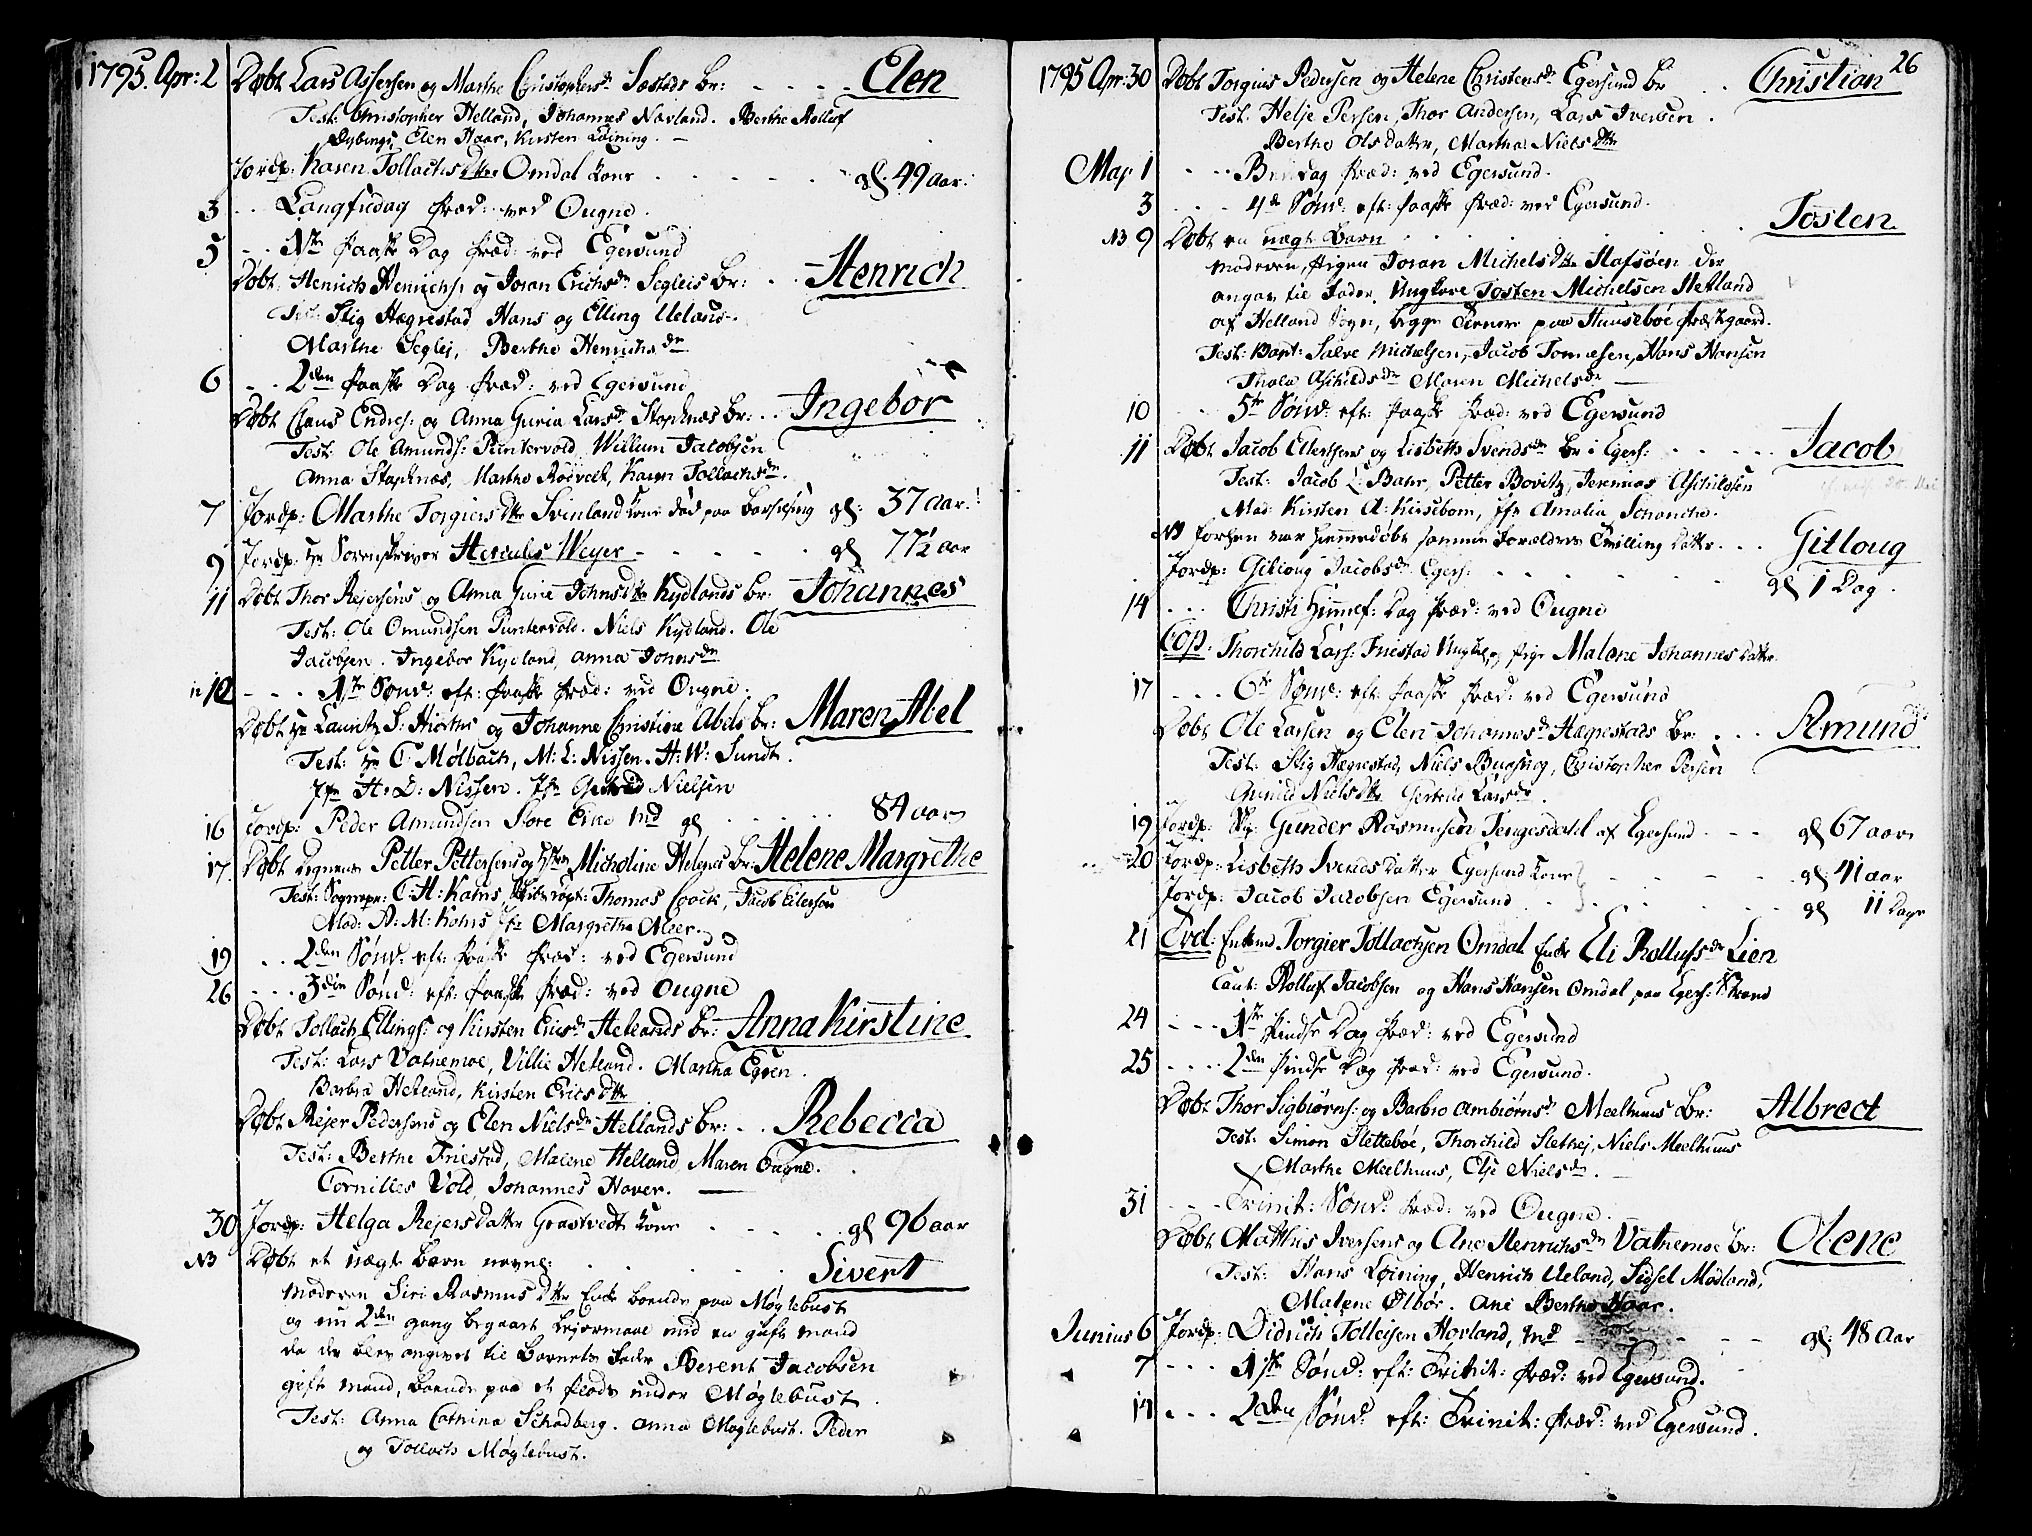 1795. Apr: 2 Døbt Lars Assersen og Marthe Christophersdr Sæstads Br: Elen
Test: Christopher Helland, Johannes Navland. Berthe Rolluf
Elen Haar, Kirsten Løining.
Jordp: Karen Tollachsdttr Omdal Kone gl. 49 aar.
3 Langfridag Præd: ved Ougne.
5 1ste Paaske Dag Præd: ved Egersund
Døbt Henrich Henrichs: og Joran Erichsdr Segleis Br: Henrich
Test: Stig Hægrestad, Hans og Elling Ueland.
Marthe Seglej, Berthe Henrichsdr
6 2den Paaske Dag Præd: ved Egersund
Døbt Claus Endres: og Anna Guria Larsdr Stapnæs Br: Ingebor
Test: Ole Amunds: Puntervold, Willum Jacobsen
Anna Stapnæs, Marthe Rødvelt, Karen Tollachsdr.
7 Jordp: Marthe Torgiersdttr Svinland Kone død paa Barselseng gl: 37 aar.
9 Jordp: Hr Sorenskriver Hercules Weyer gl 77½ aar
11 Døbt Thor Rejersens og Anna Gurie Johnsdttr Kydlands Br: Johannes
Test: Ole Omundsen Puntervold. Niels Kydland. Ole
Jacobsen. Ingebor Kydland, Anna Johnsdr
12 1ste Sønd: eft: Paaske Præd: ved Ougne.
Døbt Hr Lauritz S: Hiorths og Johanne Christine Abels Br: Maren Abel
Test: Hr C. Mølbach, M: L: Nissen. H: W: Sundt.
Jfr H: D: Nissen. Jfr Nielsen
16 Jordp: Peder Amundsen Store Eike Md gl 84 aar
17. Døbt Degnen Petter Pettersens og Hstr Micheline Helgers Br: Helene Margrethe
Test: Sognepr: C: H: Kahrs, Thomas Coock, Jacob Eilersen
Mad: A: M: Kahrs Jfr Margrethe Meer.
19 2den Sønd: eft: Paaske Præd: ved Egersund
26 3die Sønd: eft: Paaske Præd: ved Ougne
Døbt Tollach Ellings: og Kirsten Ericsdr Hetlands Br: Anna Kirstine
Test: Lars Vatnemoe, Villie Hetland. Martha Egeen.
Barbra Hetland, Kirsten Ericsdttr
Døbt Rejer Pedersens og Elen Nielsdr Hellands Br: Rebecca
Test: Berthe Friestad, Malene Helland, Maren Ougne.
Cornilles Vold, Johannes Hover.
30 Jordp: Helga Rejersdatter Grastvedt Kone gl 96 aar
NB Døbt et uægte Barn navnl: Sivert
Moderen Siri Rasmusdttr Enke boende paa Møglebust
og nu 2den gang begaaet lejermaal med en gift mand
da der blev angivet til Barnets Fader Berent Jacobsen
gift mand, boende paa et plads under Møglebust.
Test: Anna Cathrina Schadberg. Anna Møglebust. Peder
og Tollach Møglebust.
26
1795 Apr: 30 Døbt Torgius Pedersen og Helene Christensdr Egersund Br Christian
Test. Helje Persen, Thor Andersen, Lars Iversen.
Berthe Olsdatter, Martha Nielsdttr
Maj 1 Bededag Præd: ved Egersund.
3 4de Sønd: eft: Paaske Præd: ved Egersund.
NB 9 Døbt en uægt Barn Tosten
Moderen, Pigen Joran Michelsdttr Hafsøen der
angav til Fader, Ungkarl Tosten Michelsen Hetland
af Helland Sogn, begge tienere paa Huusebøe Præstegaard.
Test: Bart: Salve Michelsen, Jacob Tomesen, Hans Hansen
Thala Aschildsdr Maren Michelsdr
10 5te Sønd: eft: Paaske Præd: ved Egersund
11 Døbt Jacob Ellertsens og Lisbeth Svendsdr Br i Egers: Jacob
Test: Jacob L: Bahr, Petter Bovitz, Jeremias Aschildsen
Mad: Kirsten A: Kirsebom, Jfr Amalia Schancke.
NB Forhen var hiemmedøbt samme Forældres Tvilling Datter Gitloug
Jordp: Gitloug Jacobsdr Egers: gl 1 Dag.
14 Christi Himmelf: Dag Præd: ved Ougne
Cop. Thorchild Lars: Friestad Ungk og Pige Malene Johannes Datter.
17 6te Sønd: eft: Paaske Præd: ved Egersund
Døbt Ole Larsen og Elen Johannesdr Hægrestads Br: Amund
Test: Stig Hægrestad, Niels Buchøy, Christopher Persen
Gunild Nielsdttr Gertrud Larsdr.
19 Jordp: Sig: Gunder Rasmusen Tengesdahl af Egersund gl 67 aar
20 Jordp: Lisbeth Svends Datter Egersund Kone gl: 41 aar
Jordp: Jacob Jacobsen Egersund gl 11 Dage
21 Trol: Enkemd Torgier Tollachsen Omdal Enke Eli Rollufsdr Lien
Caut: Rolluf Jacobsen og Hans Hansen Omdal paa Egers: Strand
24 1ste Pindse Dag Præd: ved Egersund
25 2den Pindse Dag Præd: ved Egersund.
Døbt Thor Sigbiørns: og Barbro Ambiørnsdr Meelhuus Br: Albrect
Test: Simon Slettebøe, Thorchild Slethej, Niels Meelhuus
Marthe Meelhuus, Else Nielsdr.
31 Trinit: Sønd: Præd: ved Ougne.
Døbt Mathis Iversens og Ane Henrichsdr Vatnemoe Br: Olene
Test: Hans Løining, Henrich Ueland, Sidsel Modland,
Malene Ølbør. Ane Berthe Haar.
Junius 6 Jordp: Didrich Tolleisen Horland, Md gl: 48 aar
7 1ste Sønd: eft: Trinit: Præd: ved Egersund.
14 2den Sønd: eft: Trinit: Præd: ved Egersund.